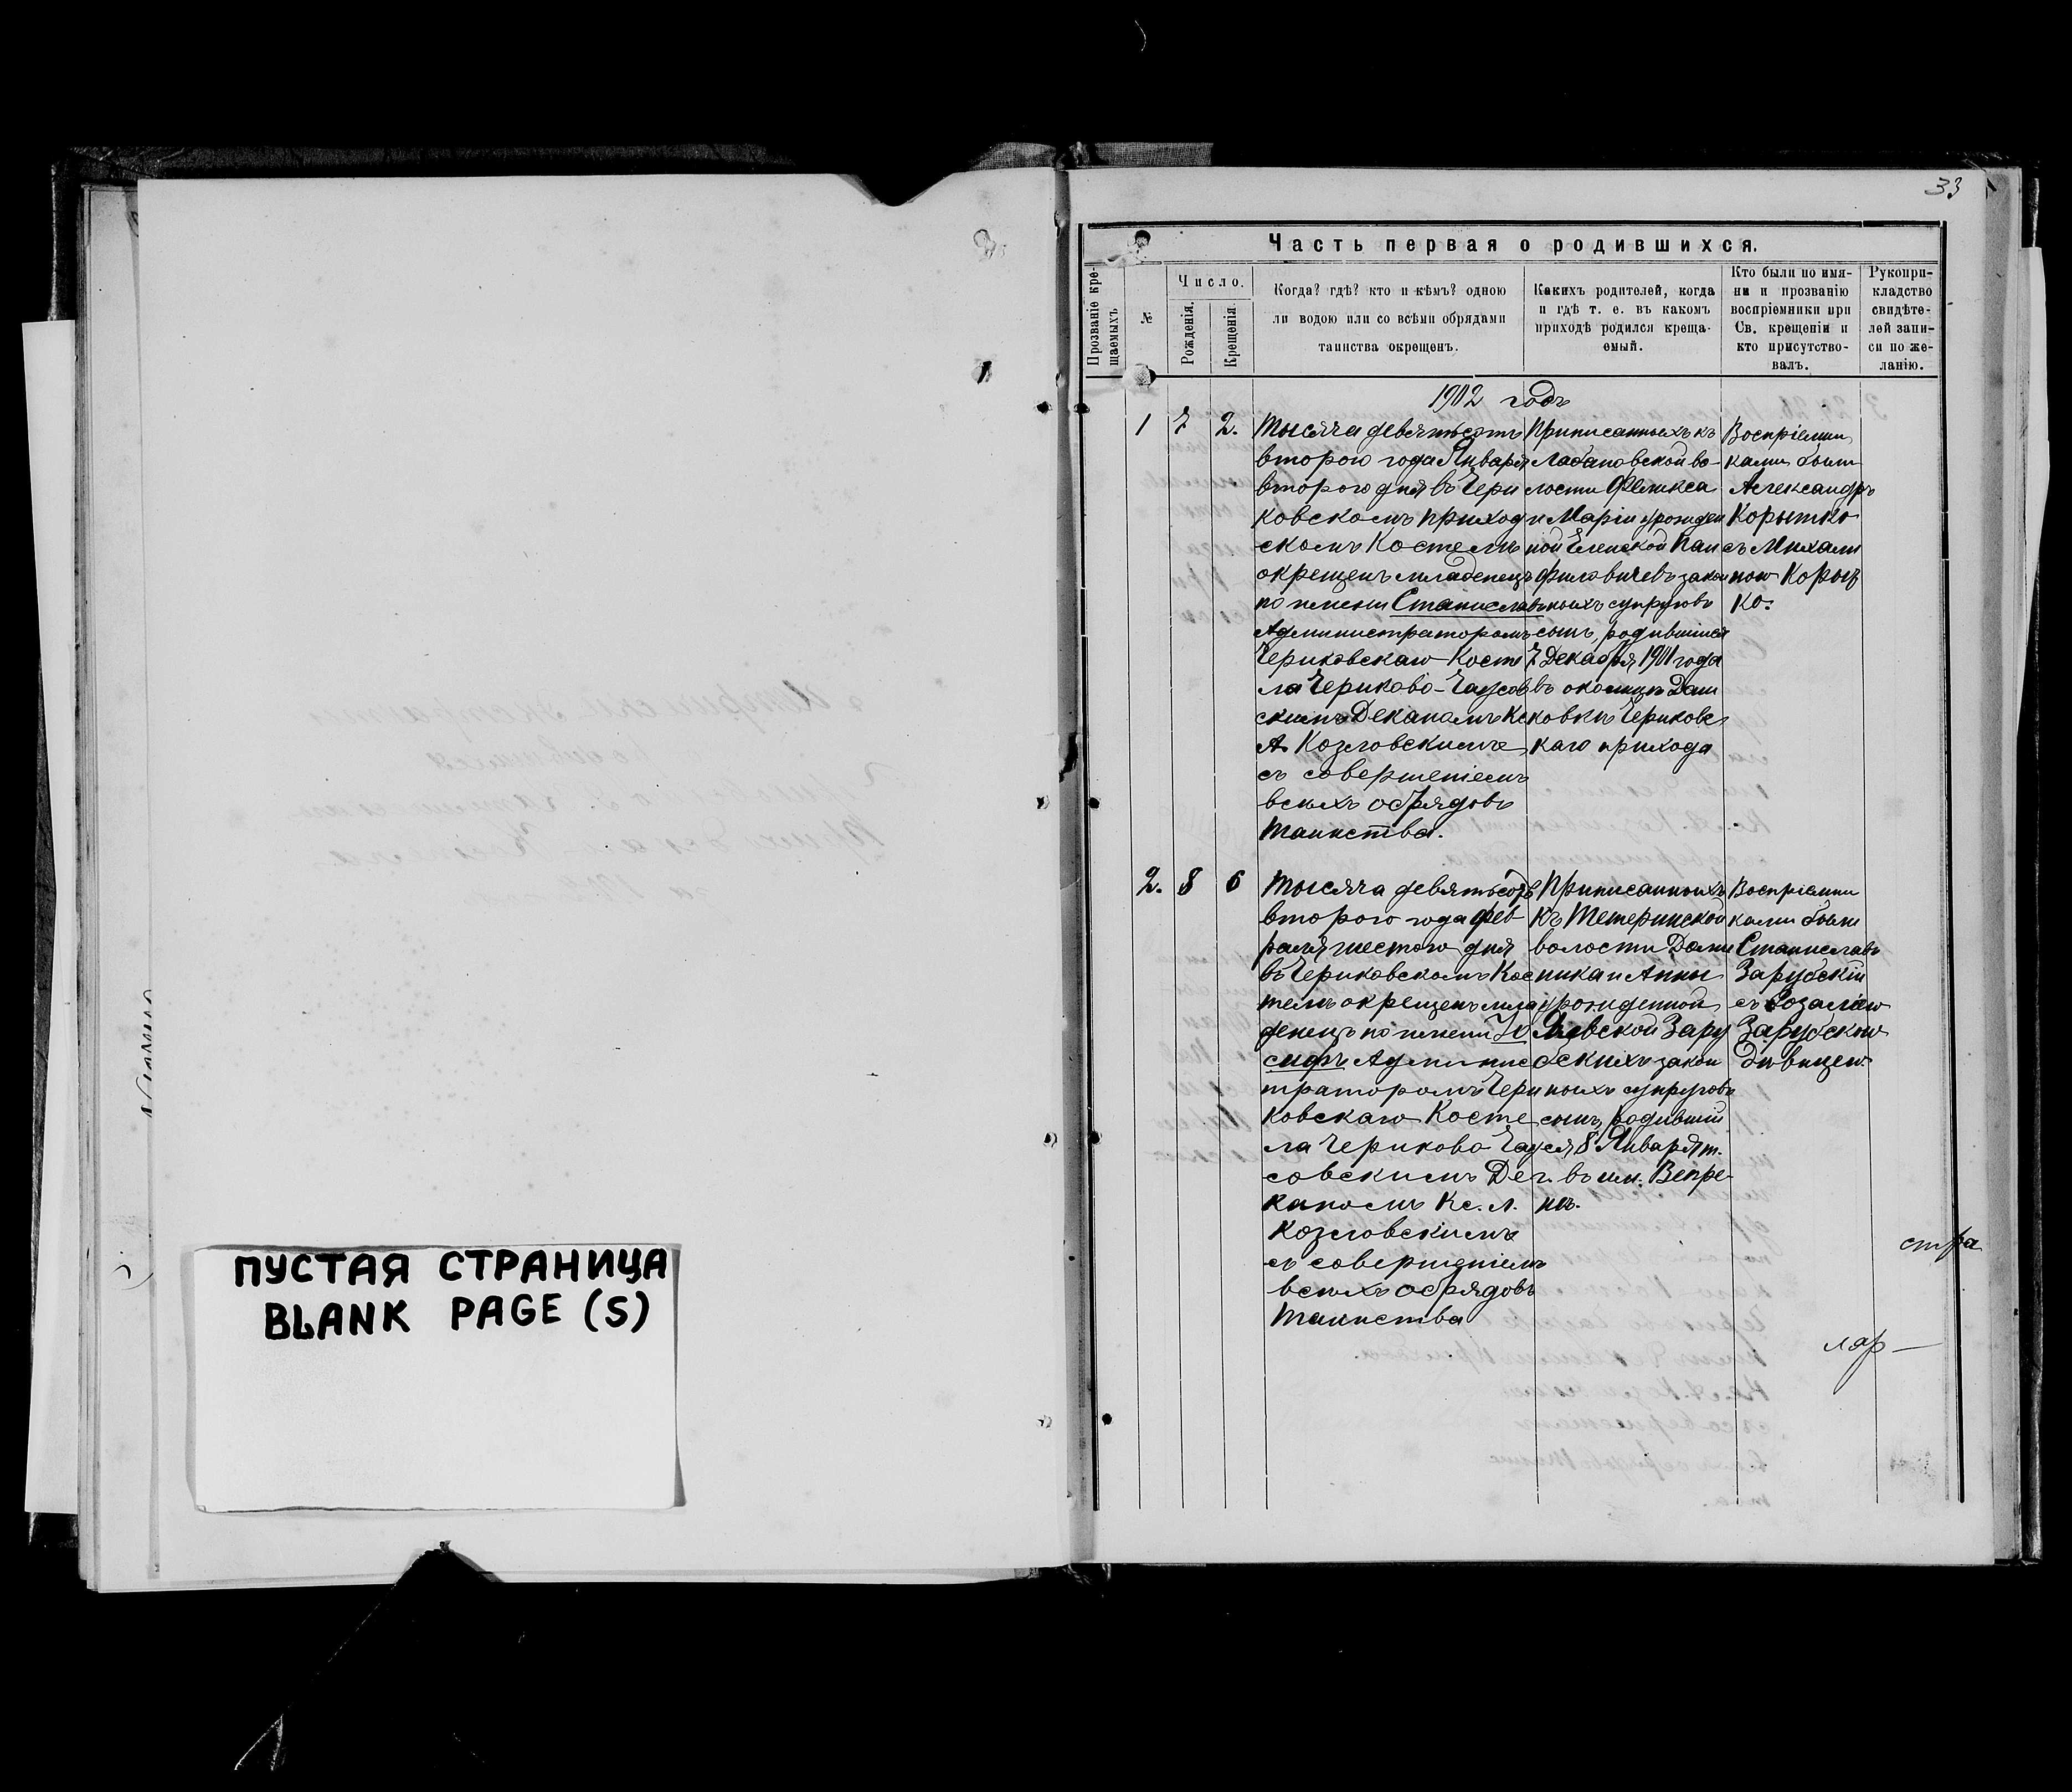 33
Часть первая о родившихся.
Прозваніе кре-
щаемыхъ
№
Число.
Рожденія.
Крещенія.
Когда? гдѣ? кто и кѣмъ? одною
ли водою или со всѣми обрядами
таинства окрещенъ.
Какихъ родителей, когда
и гдѣ т. е. въ какомъ
приходѣ родился креща-
емый.
Кто были по имя-
ни и прозванію
воспріемники при
Св. крещеніи и
кто присутство-
валъ.
Рукопри-
кладство
свидѣте-
лей запи-
си по же-
ланію.
1902 годъ
1
7
2.
Тысяча девятьсотъ
второго года Января
второго дня въ Чери
ковскомъ приход
скомъ Костелѣ
окрещенъ младенецъ
по имени Станиславъ
Администраторомъ
Чериковскаго Косте
ла Чериково-Чаусов
скимъ Деканомъ Кс
А. Козловскимъ
съ совершеніемъ
всѣхъ обрядовъ
таинства.
Приписанныхъ къ
Лобановской во-
лости Феликса
и Маріи урожден
ной
закон
ныхъ супруговъ
сынъ, родившійся
7 Декабря 1901 года
въ околицѣ Даш
ковкѣ Чериковс
каго прихода
Воспріемни
ками были
Александръ
Корытко
съ Михали
ною Корыт
ко.
2.
8
6
Тысяча девятьсотъ
второго года фев-
раля шестого дня
въ Чериковскомъ Кос
телѣ окрещенъ мла
денецъ по имени Іо
сифъ Админис
траторомъ Чери
ковскаго Косте
ла Чериково Чау
совскимъ Де
каномъ Кс. А.
Козловскимъ
съ совершеніемъ
всѣхъ обрядовъ
таинства
Приписанныхъ
къ Тетеринской
волости Доми
ника и Анны
урожденной
Зару
бскихъ закон
ныхъ супруговъ
сынъ, родивші
ся 8 Января т.
г. въ им. Вепре-
нѣ.
Воспріемни
ками были
Станиславъ
Зарубскій
съ Розаліею
Зарубскою
дѣвицею.
стра
ляр—
ПУСТАЯ СТРАНИЦА
BLANK PAGE (S)